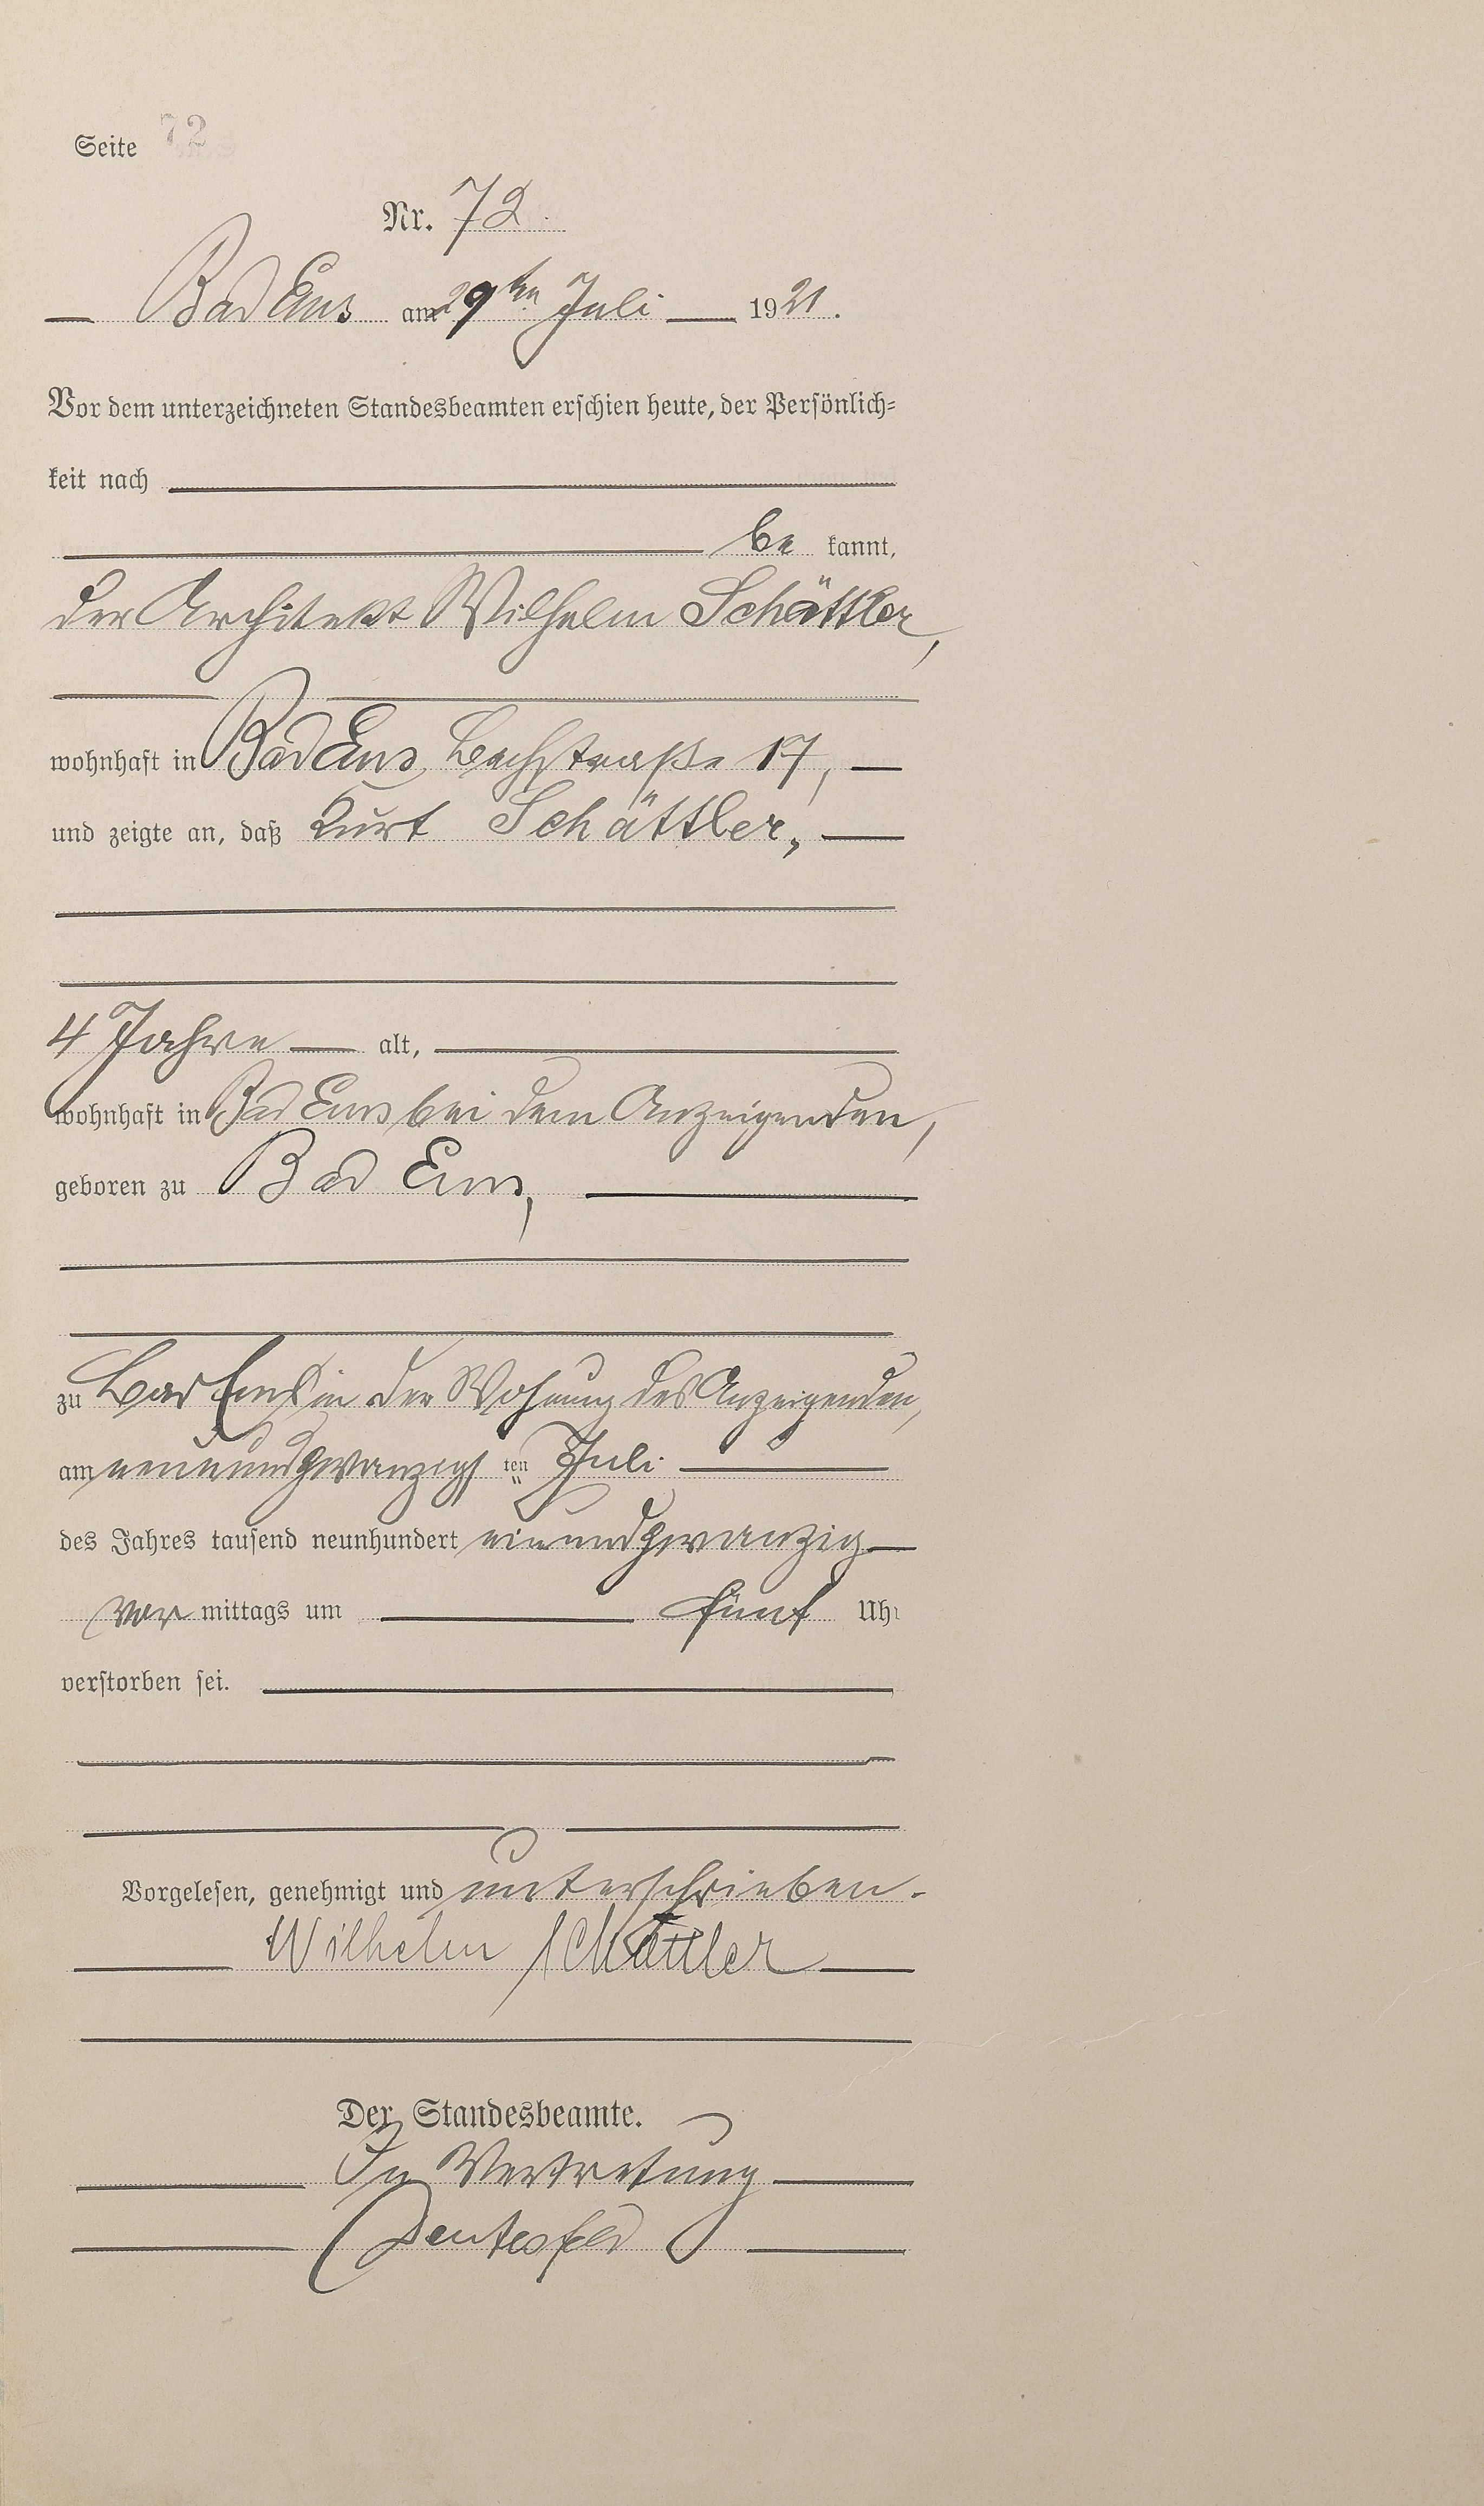 Seite 72
Nr. 72
Bad Ems am 29ten Juli 1921.
Vor dem unterzeichneten Standesbeamten erschien heute, der Persönlich=
keit nach
be kannt,
der Architekt Wilhelm Schättler,
wohnhaft in Bad Ems, Bachstraße 17,
und zeigte an, daß Kurt Schättler,
4 Jahre alt,
wohnhaft in Bad Ems bei dem Anzeigenden,
geboren zu Bad Ems,
zu Bad Ems in der Wohnung des Anzeigenden,
am neunundzwanzigsten Juli
des Jahres tausend neunhundert einundzwanzig
vor mittags um fünf Uhr
verstorben sei.
Vorgelesen, genehmigt und unterschrieben.
Wilhelm Schättler
Der Standesbeamte.
In Vertretung